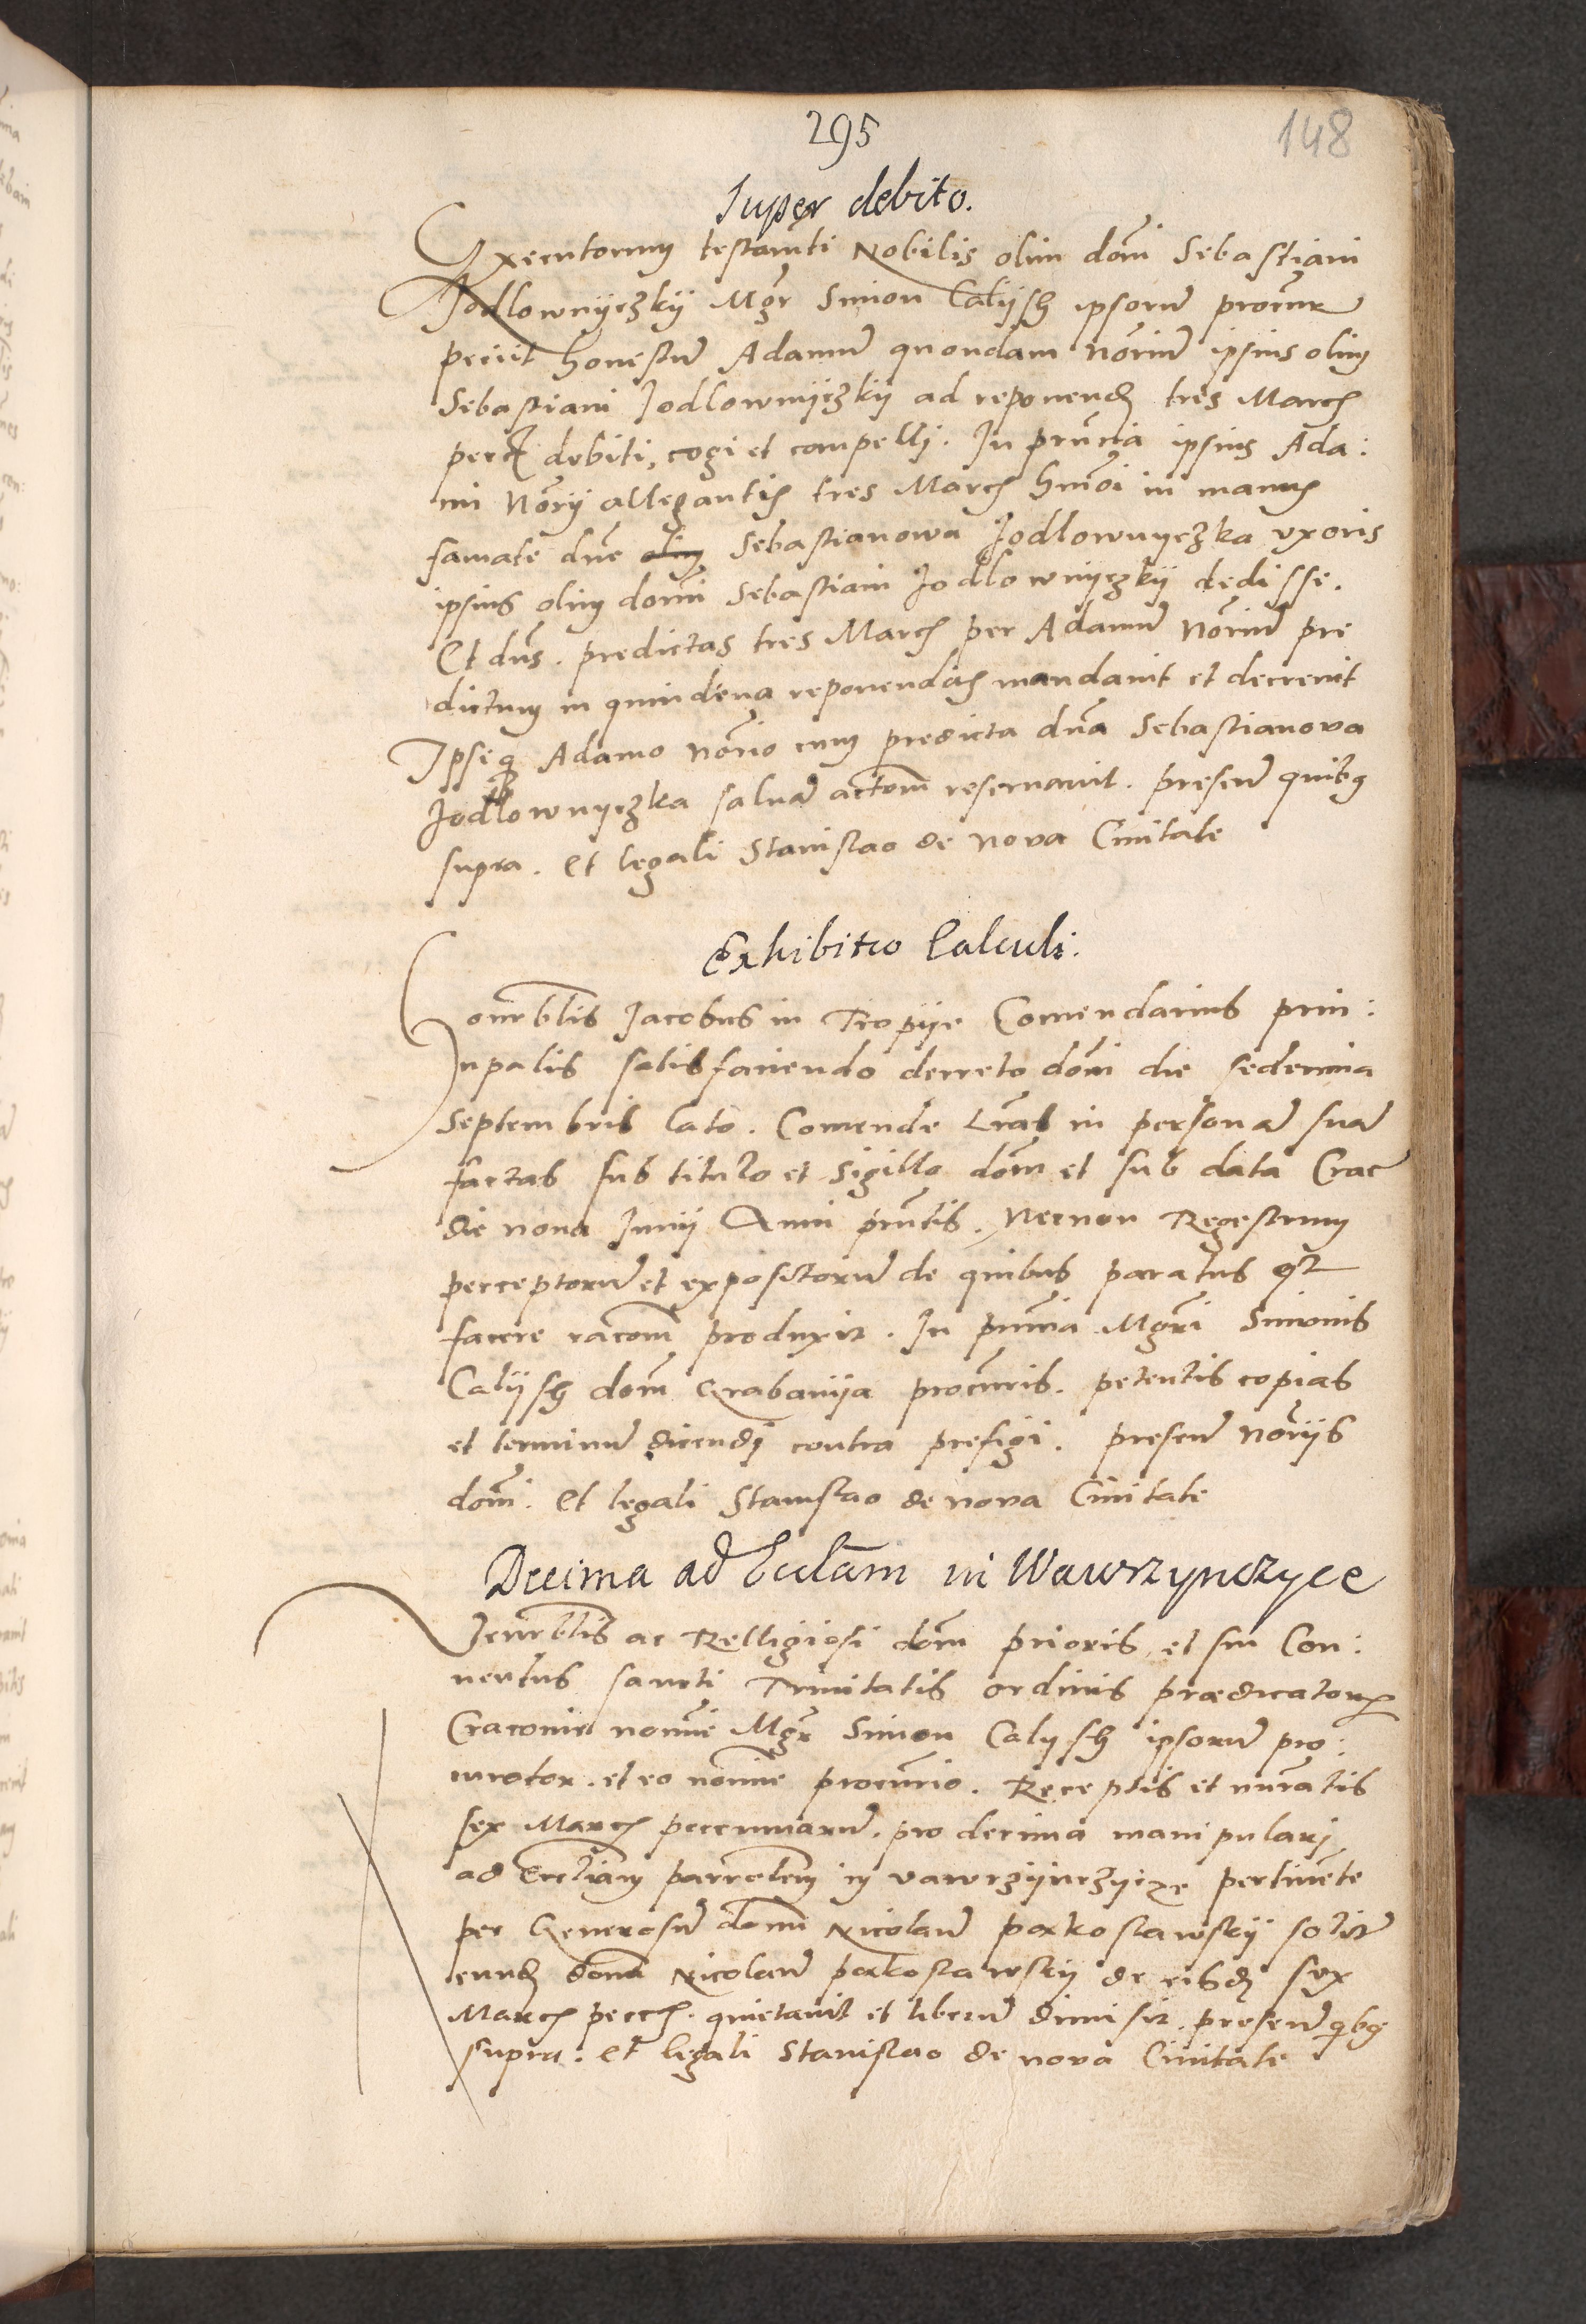 295
148
Super debito.
Executorum testamti Nobilis olim domi Sebastiani
Jodlownyczkij Mgr Simon Calijsch ipsorum procur
petiit honestum Adamum quondam norium ipsius olim
Sebastiani Jodlownijczkij ad reponend tres March
pecc debiti, cogi et compelli. In prntia ipsius Ada:
mi norij allegantis tres March hmoi in manus
famate dne olim Sebastianowa Jodlownyczka uxoris
ipsius olim domi Sebastiani Jodlownijczkij dedisse.
Et dns. predictas tres March per Adamum norium pre
dictum in quindena reponendas mandavit et decrevit
Ipsiq Adamo norio cum predicta dna Sebastianova
Jodlownyczka salvam actom reservavit. presen quibs
supra. Et legali Stanislao de nova Civitate
Exhibitio Calculi.
Honrblis Jacobus in Tropije Comendarius prin:
cipalis satisfaciendo decreto domi die sedecima
Septembris lato. Comende Lras in personam suam
factas sub titulo et Sigillo dom et sub data Crac
die nona Junij Anni prntis. necnon Regestrum
perceptorum et expositorum de quibus paratus est
facere racom produxit. In prntia Mgri Simonis
Calijsch dom Grabanija procuris. petentis copias
et terminum dicendi contra prefigi. presen norijs
domi. Et legali Stanislao de nova Civitate
Decima ad Eccl̄am in Wawrzynczyce
Venrblis ac Relligiosi dom prioris et sui Con:
ventus sancti Trinitatis ordinis prædicatorum
Cracovie nomie Mgr Simon Calysch ipsorum pro:
curator. et eo nomine procurio. Receptis et nuratis
sex March peccuniarum. pro decima manipulari
ad Eccliam parrolem in vawrzijnczijcze pertinete
per Generosum domi Nicolaum porkoslawskij solit
eund dom Nicolaum porkoslawskij de eisd sex
March pecc. quietavit et liberum dimisit. presen qbs
supra. et legali Stanislao de nova Civitate